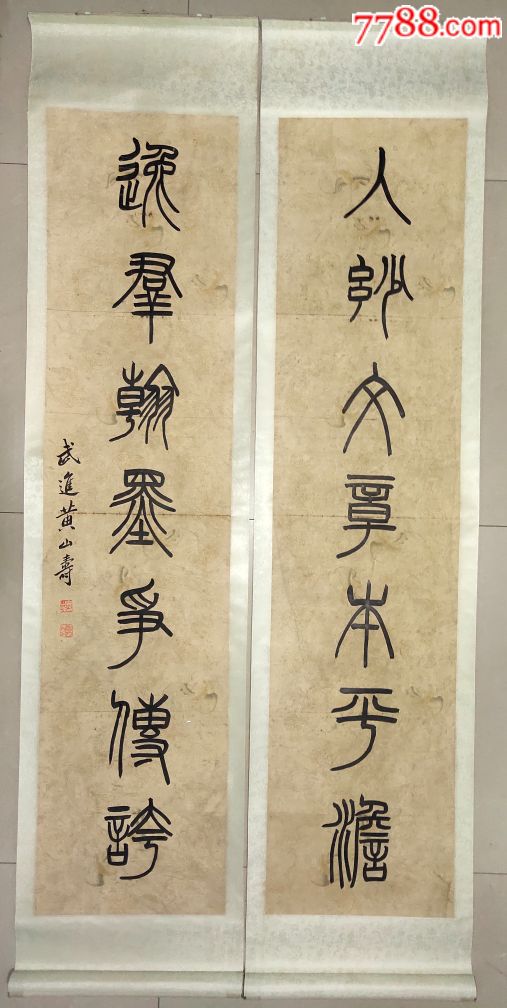 7788.com
入玅文章本平澹
逸羣翰墨爭傳誇
武進黃山壽